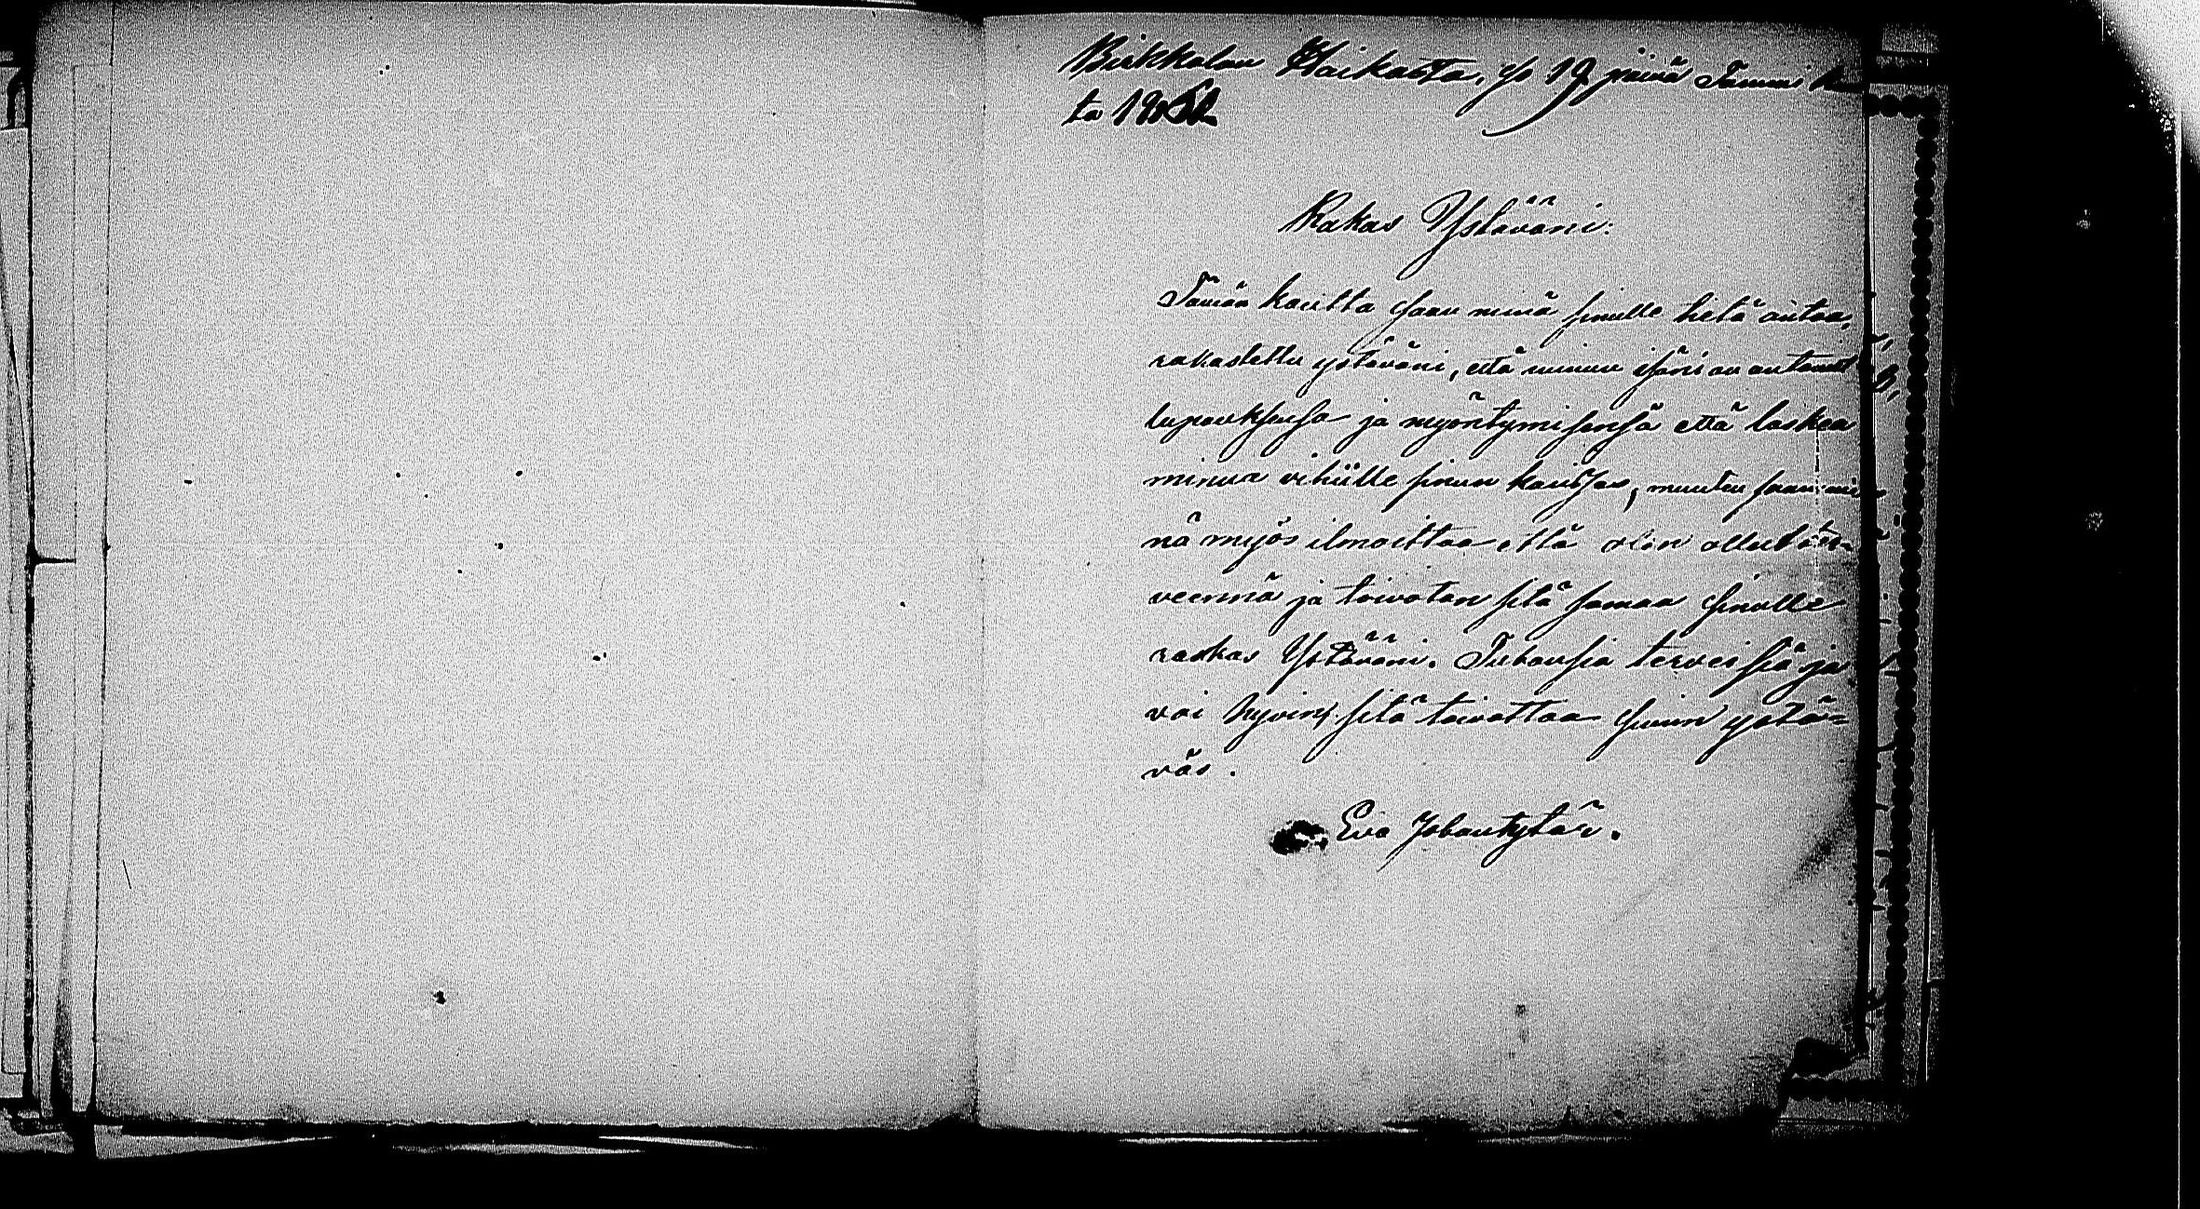 Birkkalan Haikasta, so 19 päivä Tammi
ta
Rakas Ystäväni:
Tämän kautta saan minä sinulle tietä antaa,
rakastettu ystäväni, että minun isäni on antanut
lupauksensa ja myöntymisensä että laskea
minua vihille sinun kanssas, muuten saan mi
nä myös ilmoittaa että olen ollut ter-
veennä ja toivotan sitä samaa sinulle
rakkas Ystäväni. Tuhansia terveisiä ja
voi hyvin, sitä toivottaa sinun ystä=
väs.
Eva Johantytär.